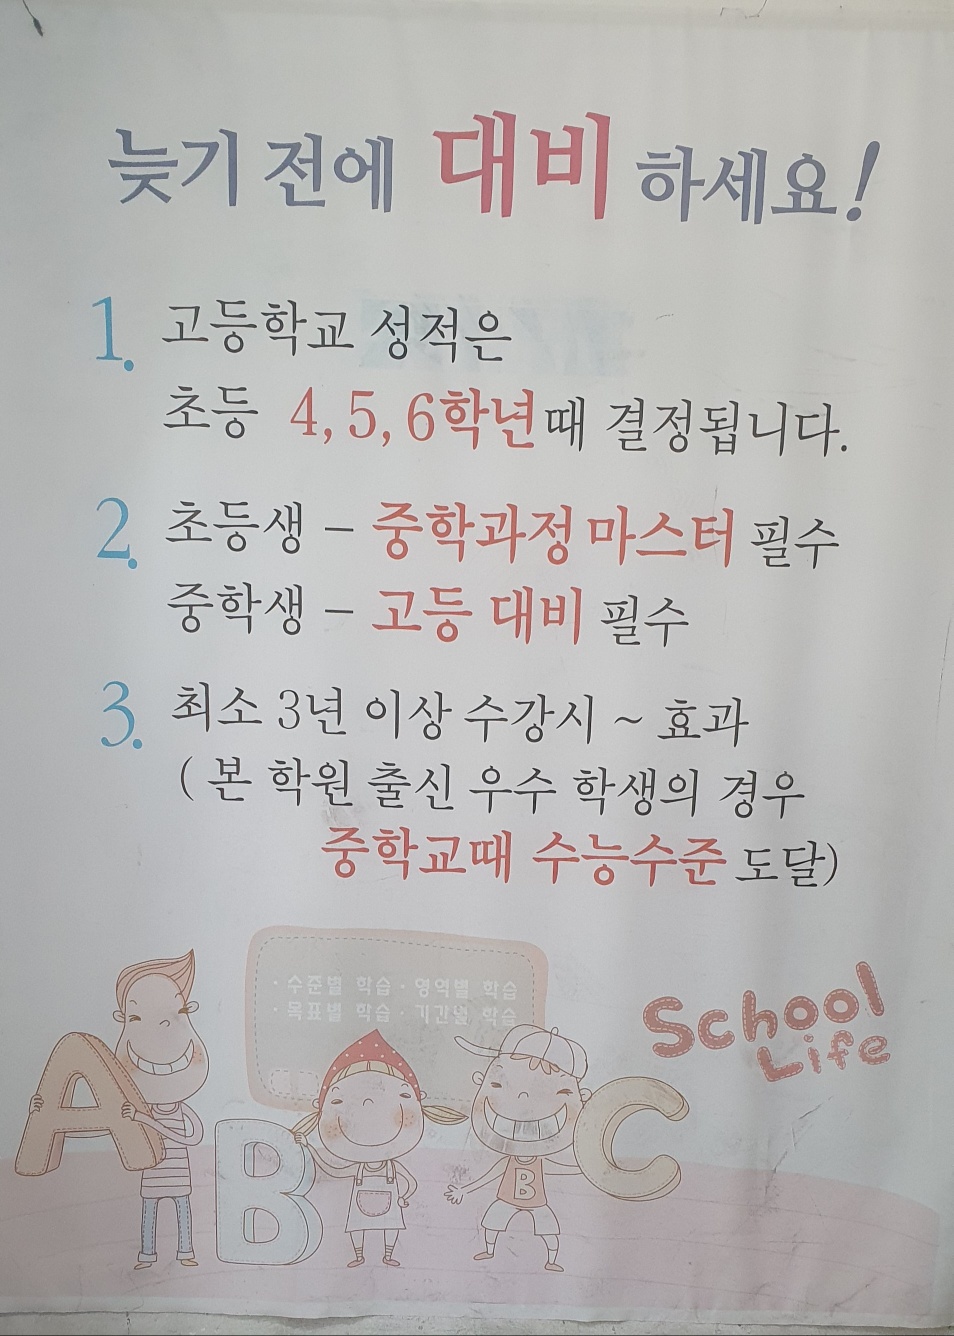 늦기 전에 대비 하세요!
1. 고등학교 성적은
초등 4, 5, 6학년때 결정됩니다.
2. 초등생 - 중학과정 마스터 필수
중학생 - 고등 대비 필수
3. 최소 3년 이상 수강시 ~ 효과
( 본 학원 출신 우수 학생의 경우
중학교때 수능수준 도달)
· 수준별 학습 · 영역별 학습
· 목표별 학습 · 기간별 학습
School
Life
A
B
B
C